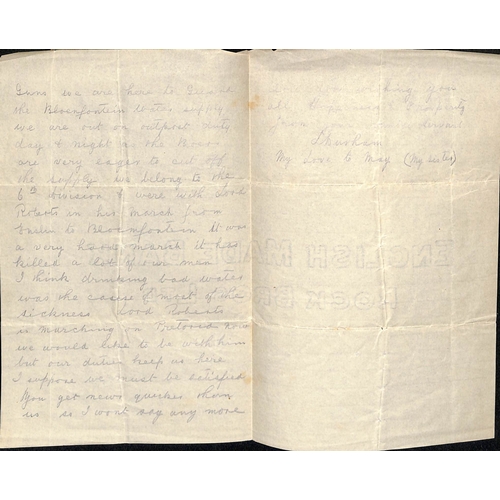 Guns we are here to Guard
the Bloemfontein Water supply
we are out on outpost duty
day & night as the Boers
are very eager to cut off
the supply we belong to the
6th Division & were with Lord
Roberts in his march from
to Bloemfontein It was
a very hard march it has
killed a lot of our men
I think drinking bad water
was the cause of most of the
sickness Lord Roberts
is marching on Pretoria now
we would like to be with him
but our duties keep us here
I suppose we must be satisfied
You get news quicker than
us so I wont say any more
you
all
from
My Love to May (My sister)
ENGLISH MADE